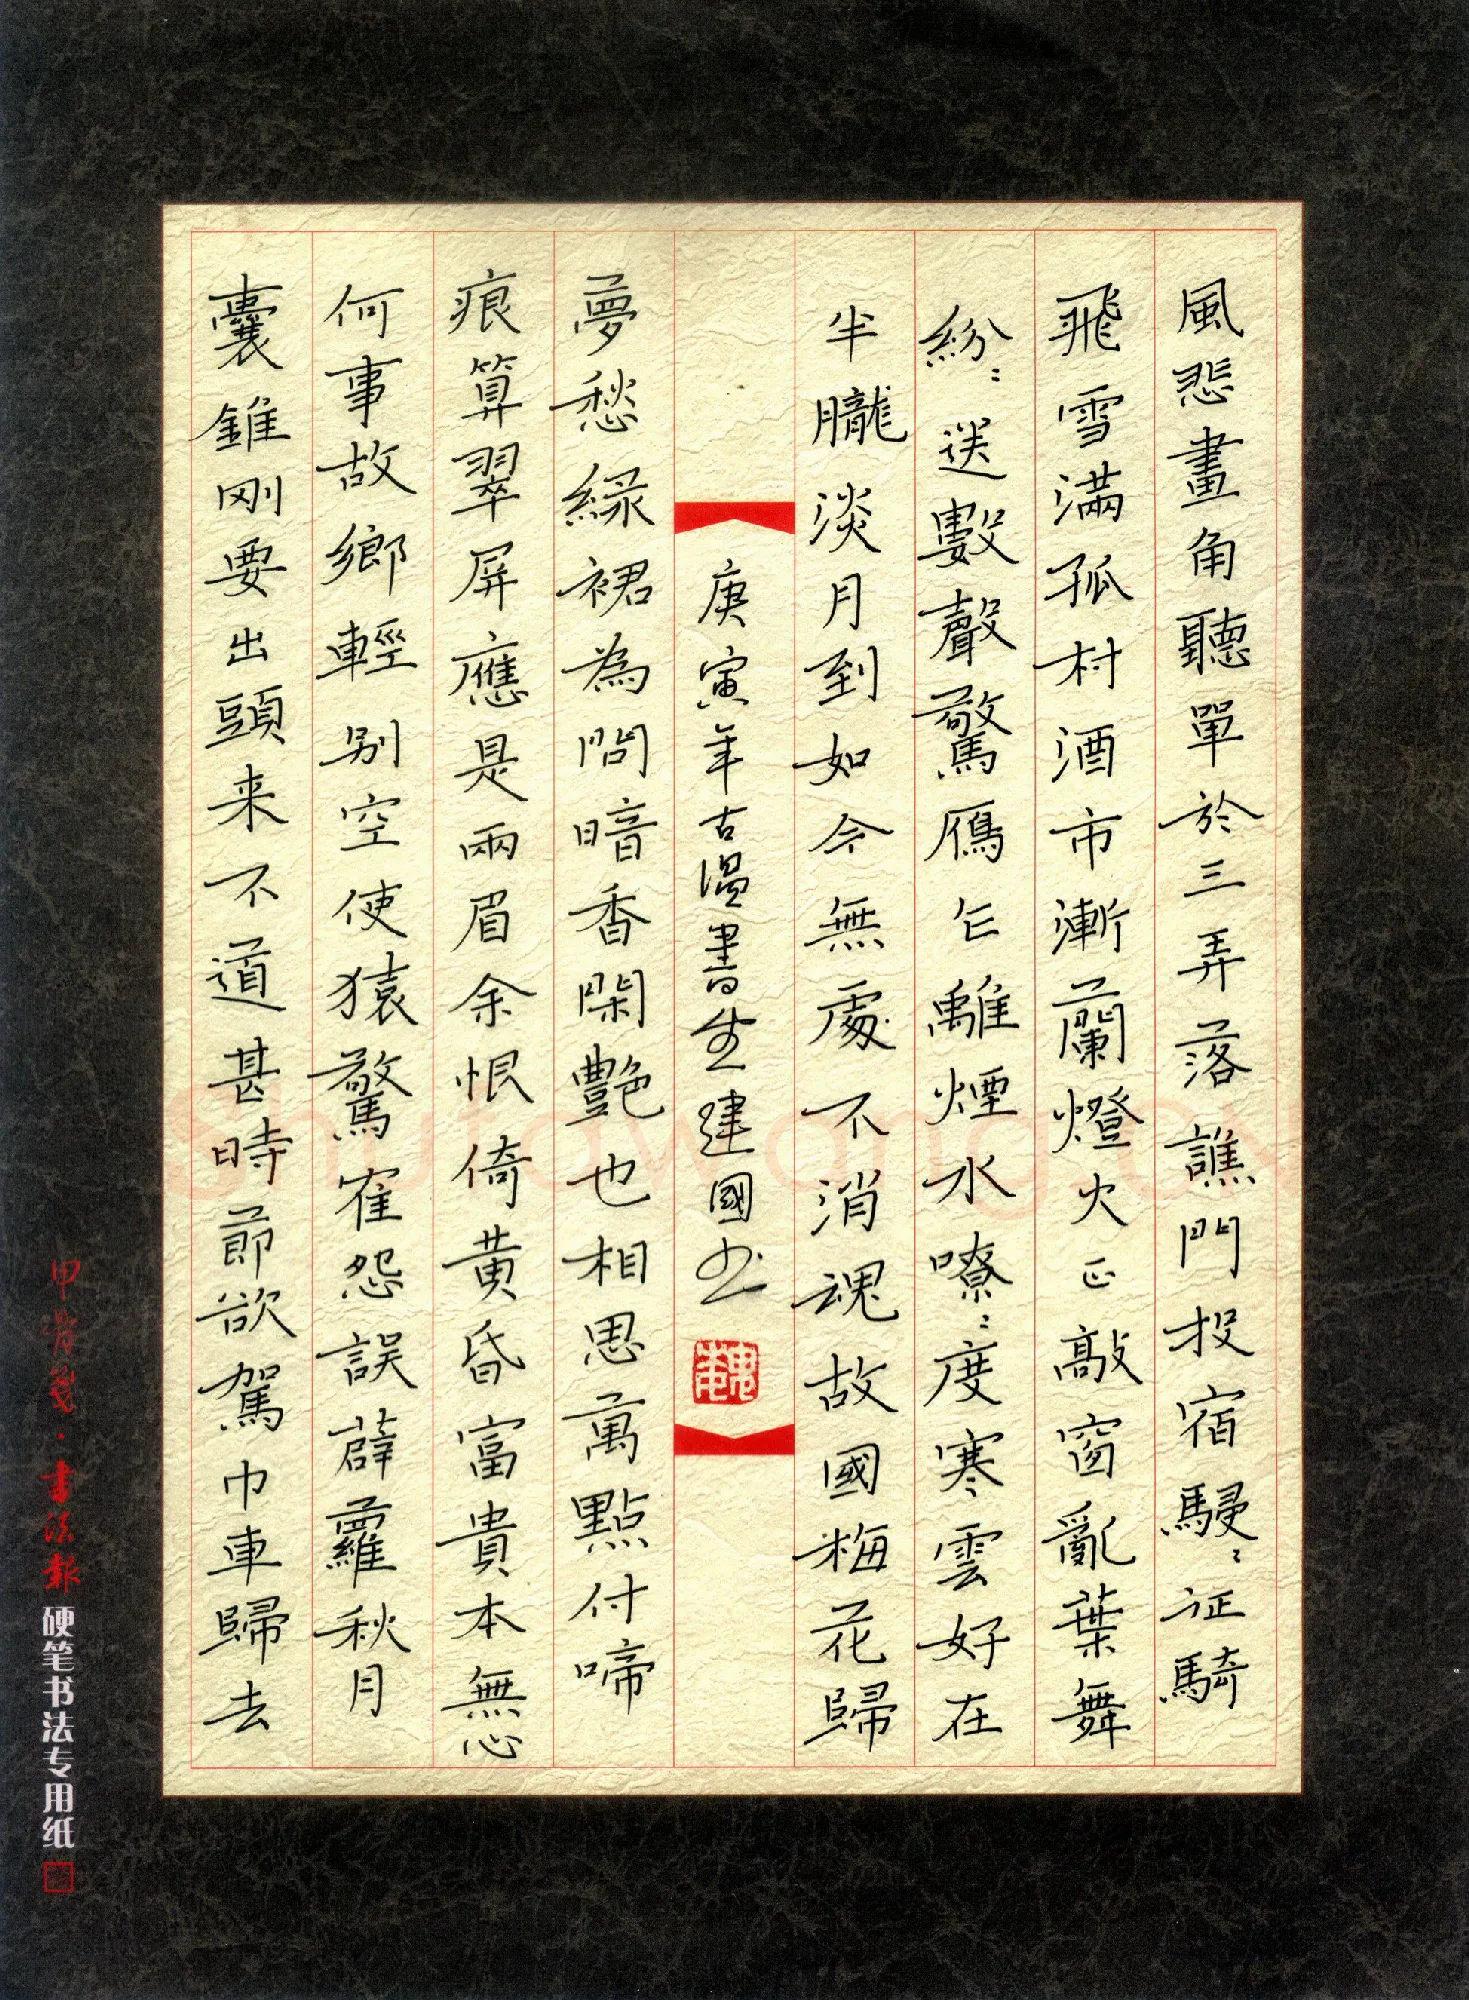 風悲畫角聽單於三弄落譙門投宿駸〻征騎
飛雪滿孤村酒市漸闌燈火正敲窗亂葉舞
紛〻送數聲驚鴈乍離煙水嘹〻度寒雲好在
半朧淡月到如今無處不消魂故國梅花歸
夢愁緑裙為問暗香閑艷也相思萬點付啼
痕算翠屏應是兩眉余恨倚黄昏富貴本無心
何事故鄉輕别空使猿驚隺怨誤薜蘿秋月
囊錐刚要出頭来不道甚時節欲駕巾車歸去
庚寅年古温書生建國书
甲骨箋·書法報硬笔书法专用纸